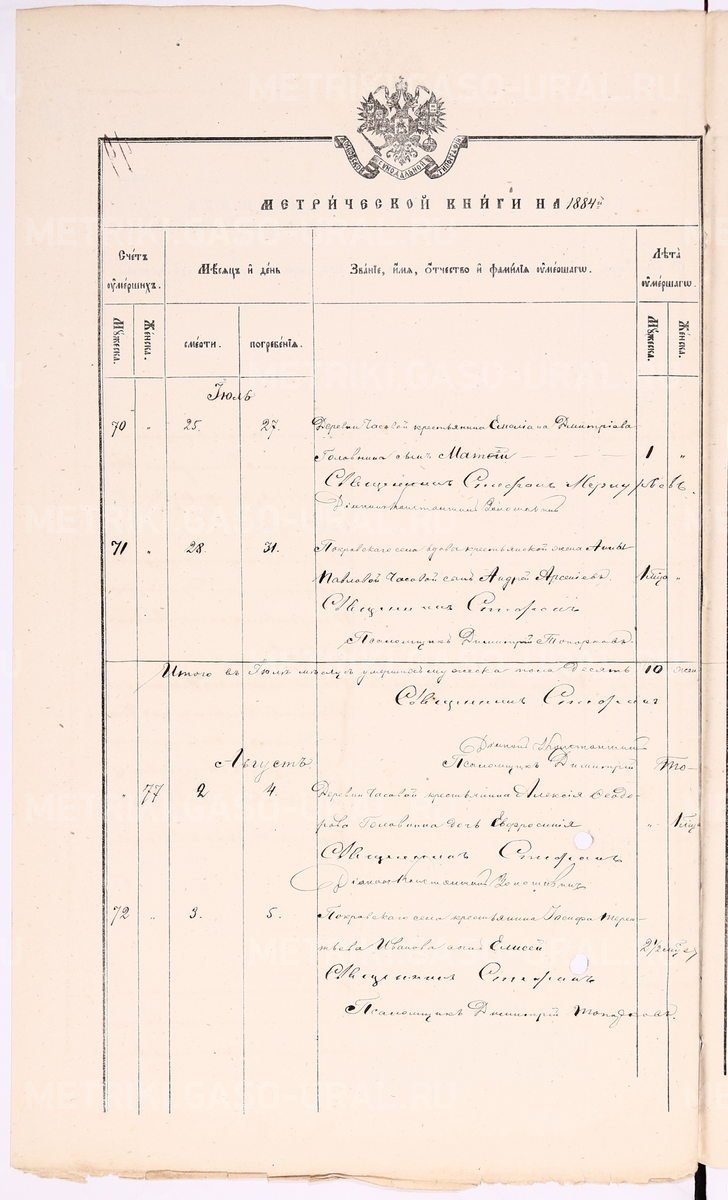 METRIKI.GASO-URAL.RU
МЕТРИ́ЧЕСКОЙ КНИ́ГИ НА 1884 г.
Сче́тъ ᲂу҆ме́ршихъ.
Мѣ́сяцъ и҆ де́нь
Зва́нїе, и҆́мя, ѻ҆́тчество и҆ фами́лїя ᲂу҆ме́ршагѡ.
Лѣ́та ᲂу҆ме́ршагѡ.
Мꙋ́жеска.
Же́нска.
сме́рти.
погребе́нїя.
Мꙋ́жеска.
Же́нска.
Іюль
70 " 25. 27. Деревни Часовой крестьянина Емелiана Димитрiева
Головина сынъ Матѳiй 1 "
Священникъ Стефанъ Меркурьевъ.
Дiаконъ Константинъ
71 " 28. 31. Покровскаго села вдовы крестьянской жены Анны
Павловой Часовой сынъ Андрей Арсенiевъ. 1 мѣся "
Священникъ Стефанъ
Псаломщикъ Димитрiй Топорковъ.
Итого въ Iюлѣ мѣсяцѣ умершихъ мужеска пола десять 10
Священникъ Стефанъ
Дiаконъ Константинъ
Августъ. Псаломщикъ Димитрiй То-
" 77 2 4. Деревни Часовой крестьянина Алексiя Ѳеодо-
рова Головина дочь Евфросинiя "
Священникъ Стефанъ
Дiаконъ Константинъ
72 " 3. 5. Покровскаго села крестьянина Iосифа Терен-
тьева Иванова сынъ Елисей 2 1/2
Священникъ Стефанъ
Псаломщикъ Димитрiй Топорковъ.
METRIKI.GASO-URAL.RU